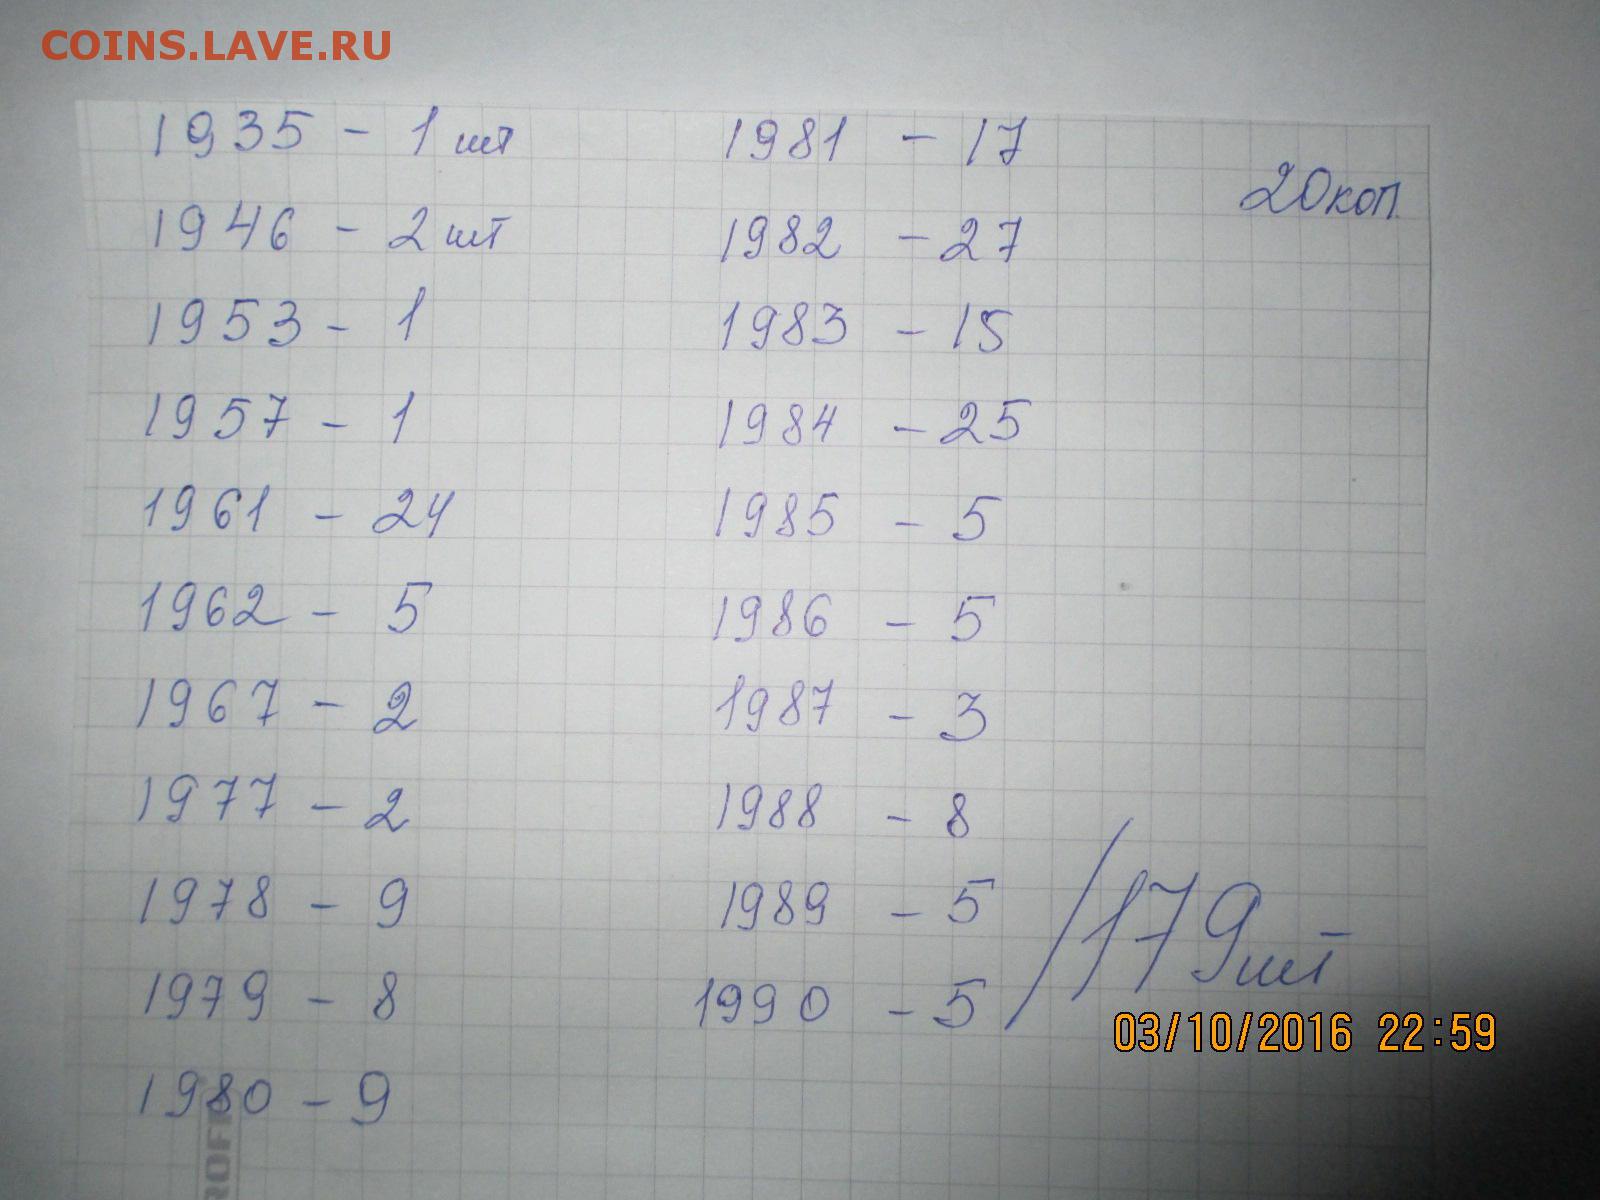 COINS.LAVE.RU
20коп.
1935 - 1 шт
1946 - 2 шт
1953 - 1
1957 - 1
1961 - 24
1962 - 5
1967 - 2
1977 - 2
1978 - 9
1979 - 8
1980 - 9
1981 - 17
1982 - 27
1983 - 15
1984 - 25
1985 - 5
1986 - 5
1987 - 3
1988 - 8
1989 - 5
1990 - 5
/179шт
03/10/2016 22:59